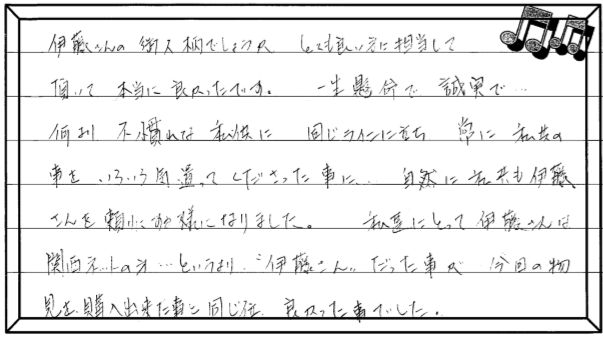 伊藤さんの御人柄でしょうか とても良い方に担当して
頂いて 本当に良かったです。 一生懸命で 誠実で…
何より 不慣れな私共に 同じラインに立ち 常に 私共の
事を いろいろ気遣って くださった事に… 自然に私共も伊藤
さんを頼りにする様になりました。 私達にとって伊藤さんは
関西ネットの方…というより、"伊藤さん"だった事が 今回の物
見を購入出来た事と同じ位 良かった事でした。